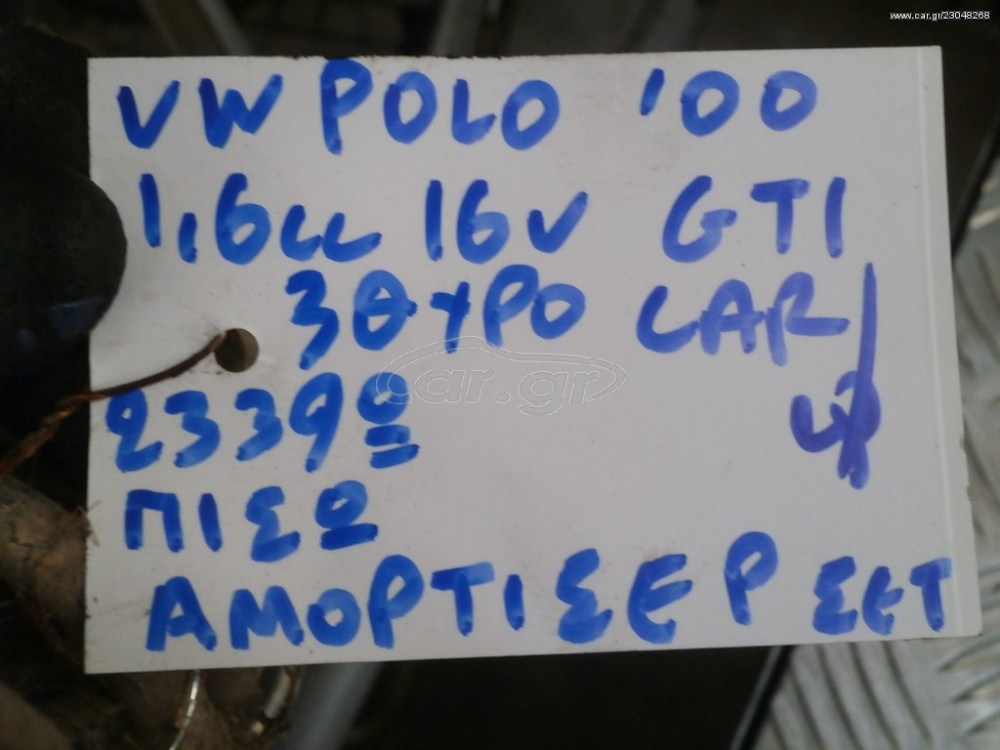 www.car.gr/23048268
VW POLO '00
1,6cc 16V GTI
3ΘΥΡΟ CAR
car.gr
2339
ΠΙΣΩ
ΑΜΟΡΤΙΣΕΡ ΣΕΤ